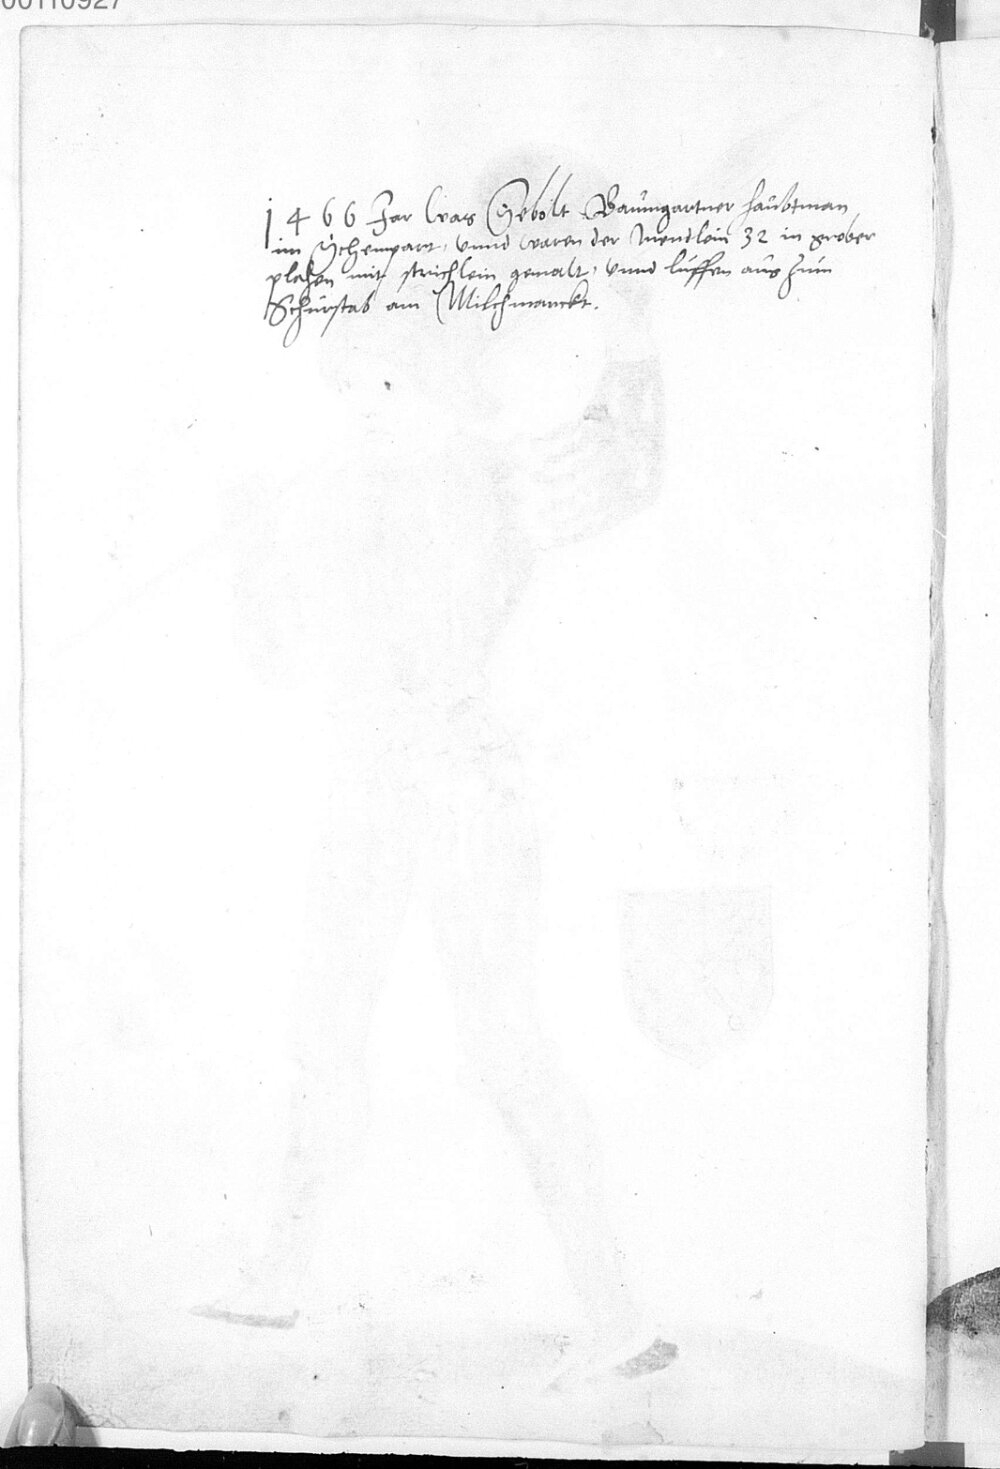 00110927
1466 Jar was Sebolt Baumgartner haubtman
im Schempart, vnnd waren der Mendlein 32 in grober
plahen mit strichlein gemalt, vnnd luffen aus zum
Schurstab am Milchmarckt.